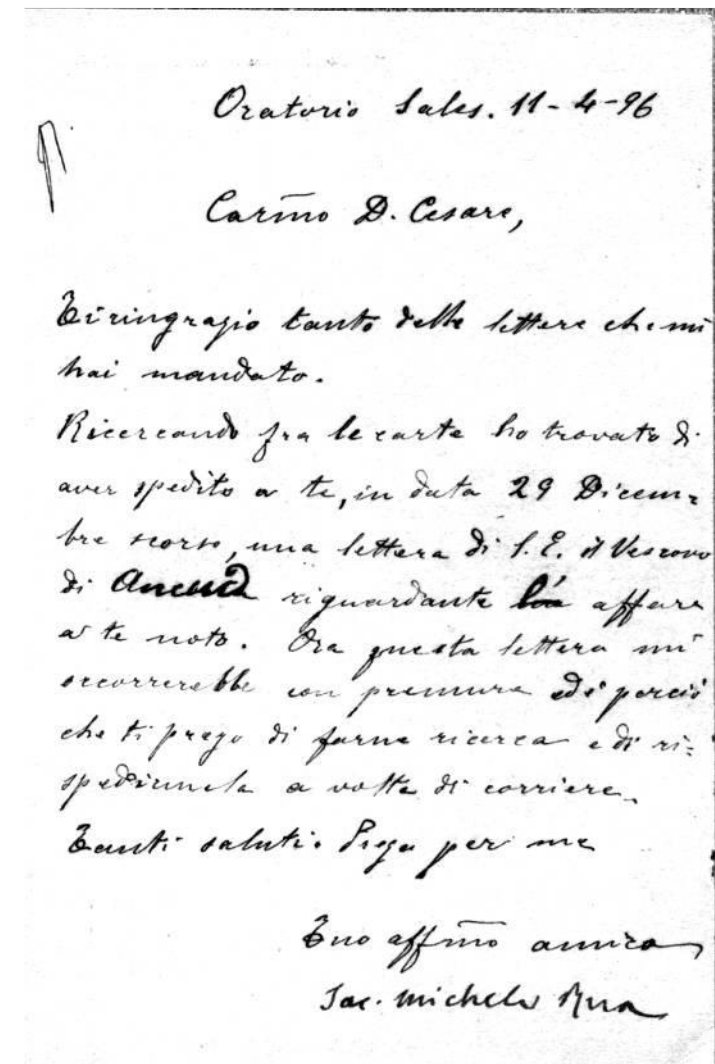 Oratorio Sales. 11-4-96
Carm̃o D. Cesare,
Ti ringrazio tanto delle lettere che mi
hai mandato.
Ricercando fra le carte ho trovato di
aver spedito a te, in data 29 Dicem-
bre scorso, una lettera di S. E. il Vescovo
di riguardante affare
a te noto. Ora questa lettera mi
occorrerebbe con premura ed è perciò
che ti prego di farne ricerca e di ri-
spedirmela a volta di corriere.
Tanti saluti. Prega per me
Tuo affm̃o amico
Sac. Michele Rua